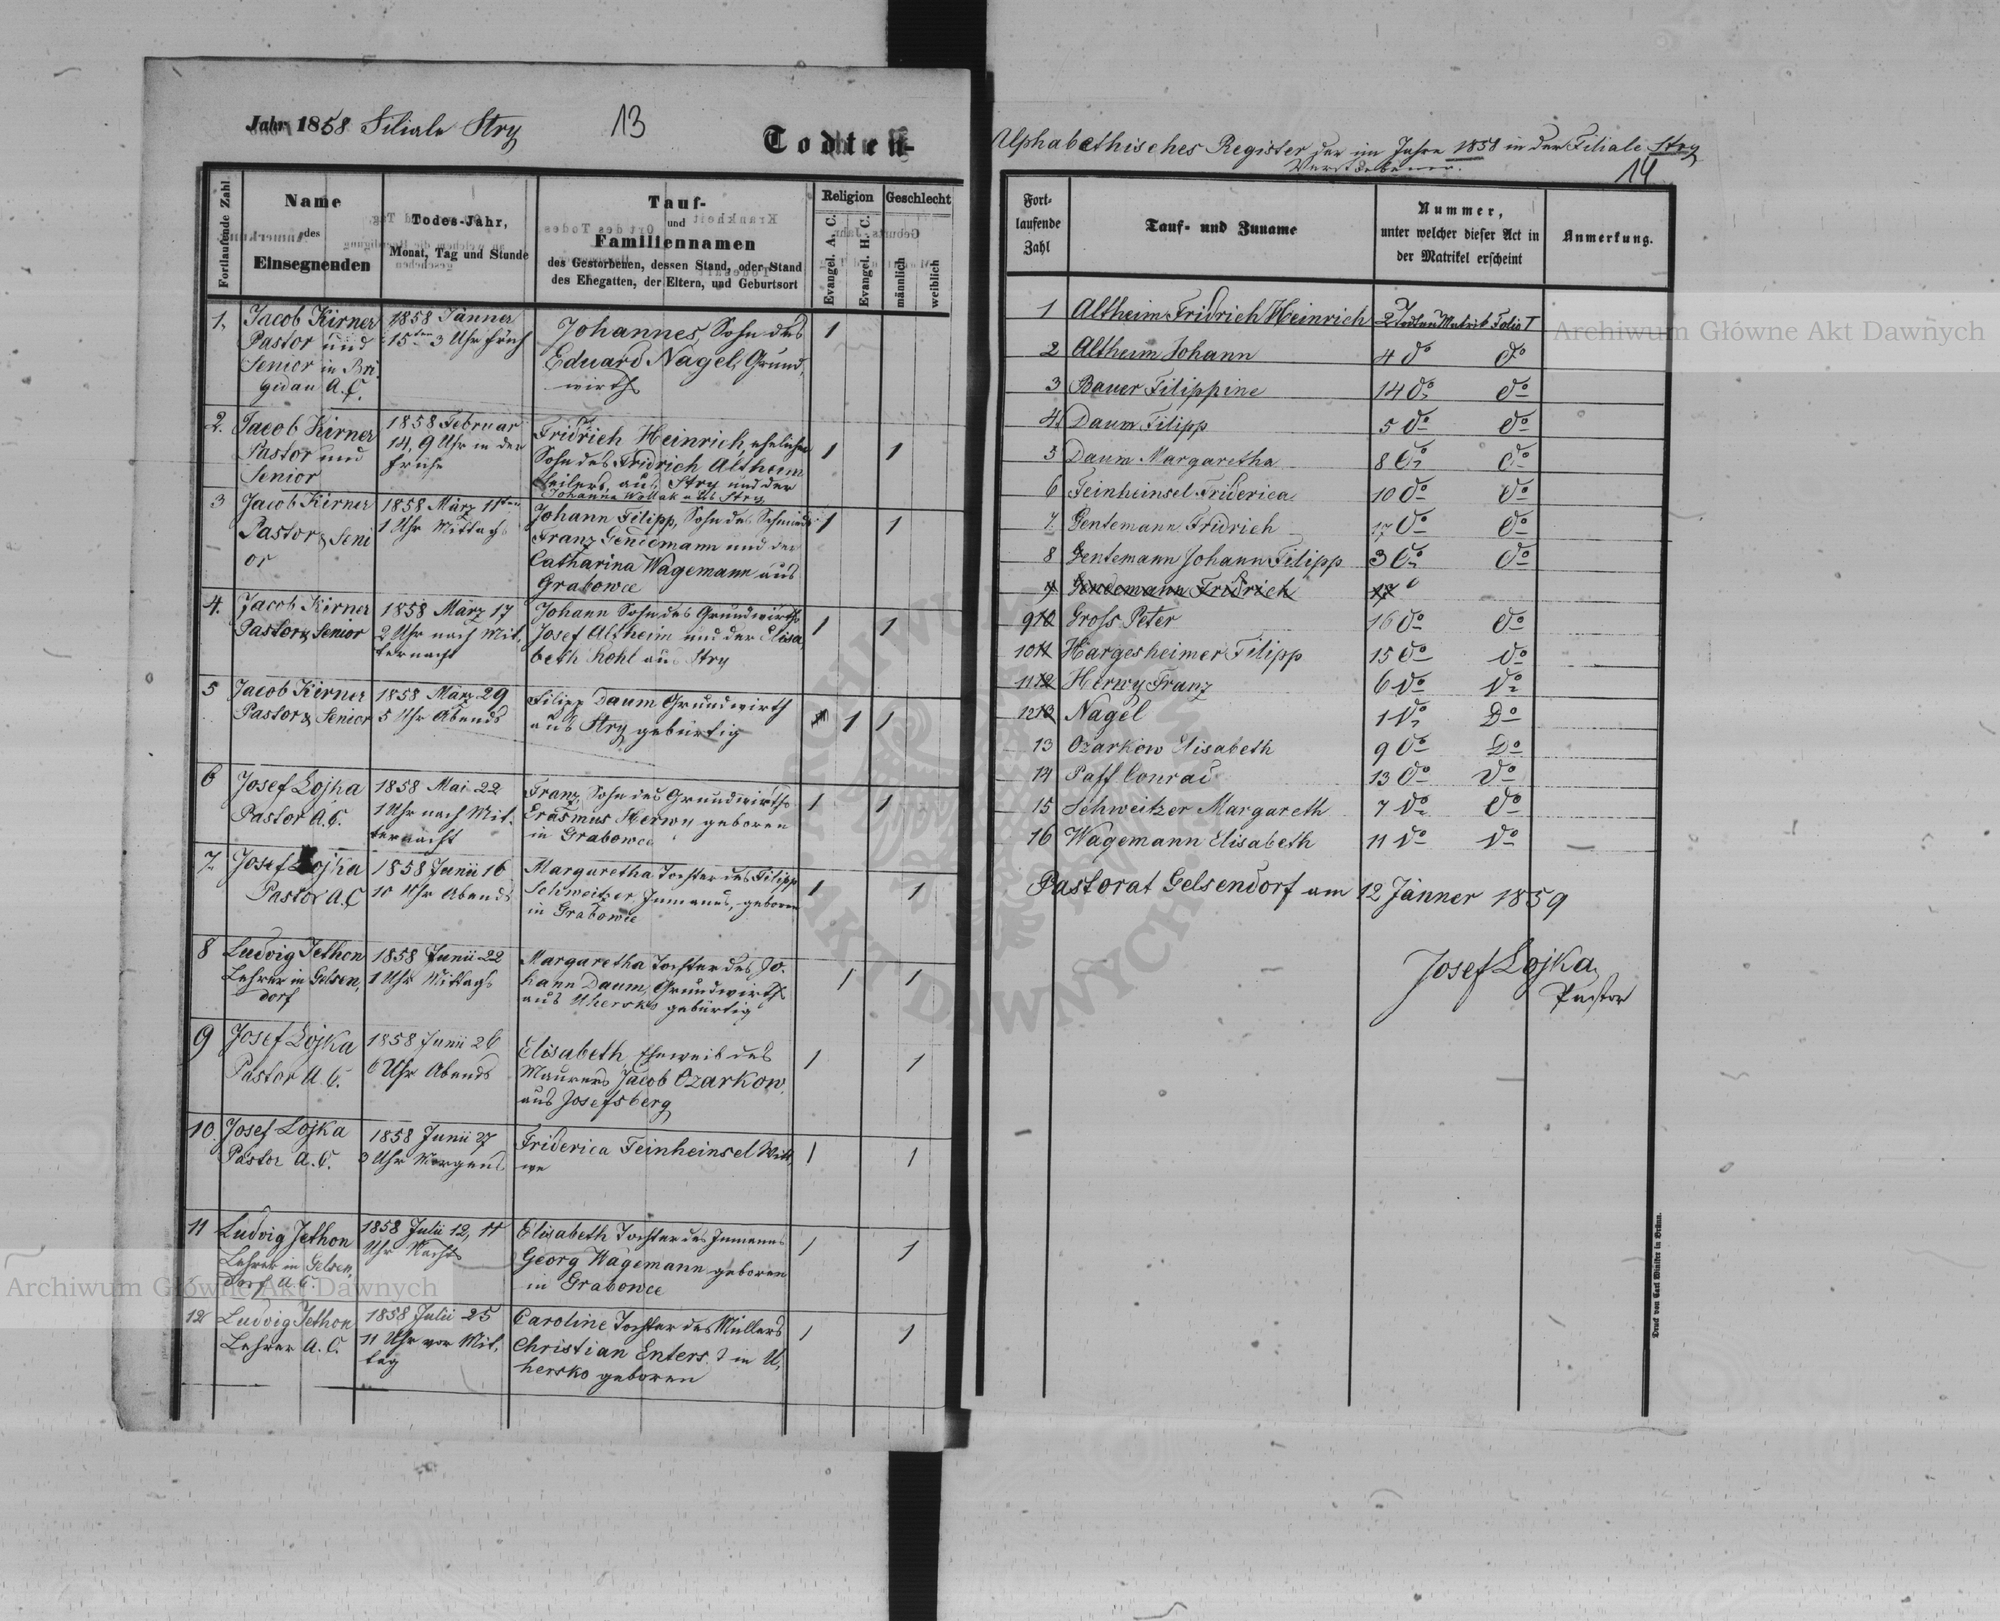 Jahr 1858 Filiale Stry
13
Todten-
Fortlaufende Zahl
Name
des
Einsegnenden
Todes-Jahr,
Monat, Tag und Stunde
Tauf-
und
Familiennamen
des Gestorbenen, dessen Stand, oder Stand
des Ehegatten, der Eltern, und Geburtsort
Religion
Evangel. A. C.
Evangel. H. C.
Geschlecht
männlich
weiblich
1. Jacob Kirner
Pastor und
Senior in Bri
gidau A. C.
1858 Jänner
15ten 3 Uhr früh
Johannes, Sohn des
Eduard Nagel, Grund,
wirth
1
2. Jacob Kirner
Pastor und
Senior
1858 Februar
14, 9 Uhr in der
Frühe
Fridrich Heinrich, ehelicher
Sohn des Fridrich Altheim
Seilers, aus Stry und der
Johanna Wollak aus Stry
1 1
3 Jacob Kirner
Pastor & Seni
or
1858 März 11ten
1 Uhr Mittags
Johann Filipp, Sohn des Schmieds
Franz Gendemann und der
Catharina Wagemann aus
Grabowce
1 1
4. Jacob Kirner
Pastor & Senior
1858 März 17
2 Uhr nach Mit,
ternacht
Johann Sohn des Grundwirths
Josef Altheim und der Elisa
beth Kehl aus Stry
1 1
5 Jacob Kirner
Pastor & Senior
1858 März 29
5 Uhr Abends
Filipp Daum Grundwirth
aus Stry gebürtig
1 1
6 Josef Lojka
Pastor A. C.
1858 Mai 22
1 Uhr nach Mit,
ternacht
Franz, Sohn des Grundwirths
Erasmus Herwy geboren
in Grabowce
1 1
7. Josef Lojka
Pastor A C
1858 Junii 16
10 Uhr Abends
Margaretha Tochter des Filipp
Schweitzer Inmanns, geboren
in Grabowce
1 1
8 Ludvig Jethon
Lehrer in Gelsen,
dorf
1858 Junii 22
1 Uhr Mittags
Margaretha Tochter des Jo,
hann Daum, Grundwirth
aus Uhersko gebürtig
1 1
9 Josef Lojka
Pastor A. C.
1858 Junii 26
6 Uhr Abends
Elisabeth Eheweib des
Maurers Jacob Ozarkow
aus Josefsberg
1 1
10. Josef Lojka
Pastor A. C.
1858 Junii 27
3 Uhr Morgens
Friderica Feinheinsel Witt,
we
1 1
11 Ludvig Jethon
Lehrer in Gelsen,
dorf A C.
1858 Julii 12, 11
Uhr Nachts
Elisabeth Tochter des Inmanns
Georg Wagemann geboren
in Grabowce
1 1
12 Ludvig Jethon
Lehrer A. C.
1858 Julii 25
11 Uhr vor Mit,
tag
Caroline Tochter des Müllers
Christian Enters in U,
hersko geboren
1 1
Alphabethisches Register der im Jahre 1858 in der Filiale Stry
Verstorbenen.
14
Fort-
laufende
Zahl
Tauf- und Zuname
Nummer,
unter welcher dieser Act in
der Matrikel erscheint
Anmerkung.
1 Altheim Fridrich Heinrich 2 Todten Matrik Folio I
2 Altheim Johann 4 do do
3 Bauer Filippine 14 do do
4 Daum Filipp 5 do do
5 Daum Margaretha 8 do do
6 Feinheinsel Friderica 10 do do
7. Gentemann Fridrich 17 do do
8 Gentemann Johann Filipp 3 do do
9 Gendemann Fridrich 17
9 10 Gross Peter 16 do do
10 11 Hargesheimer Filipp 15 do do
11 12 Herwy Franz 6 do do
12 13 Nagel 1 do Do
13 Ozarkow Elisabeth 9 do Do
14 Paff Conrad 13 do do
15 Schweitzer Margareth 7 do do
16 Wagemann Elisabeth 11 do do
Pastorat Gelsendorf am 12 Jänner 1859
Josef Lojka
Pastor
Druck von Carl Winiker in Brünn.
Archiwum Główne Akt Dawnych
Archiwum Główne Akt Dawnych